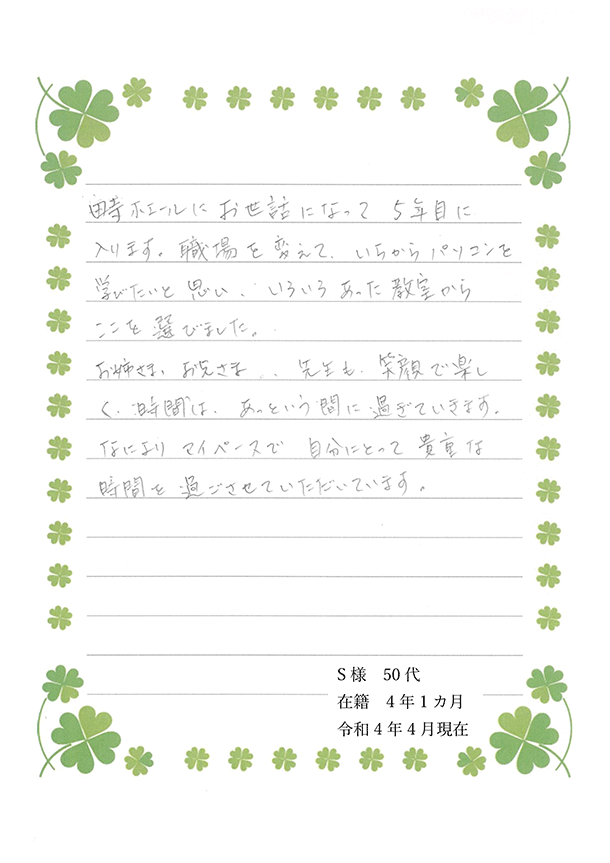 ホエールにお世話になって 5年目に
入ります。職場を変えて、いちからパソコンを
学びたいと思い、いろいろあった教室から
ここを選びました。
お姉さま、お兄さま、、先生も、笑顔で楽し
く、時間は、あっという間に過ぎていきます。
なにより マイペースで 自分にとって 貴重な
時間を過ごさせていただいています。
S様 50代
在籍 4年1カ月
令和4年4月現在